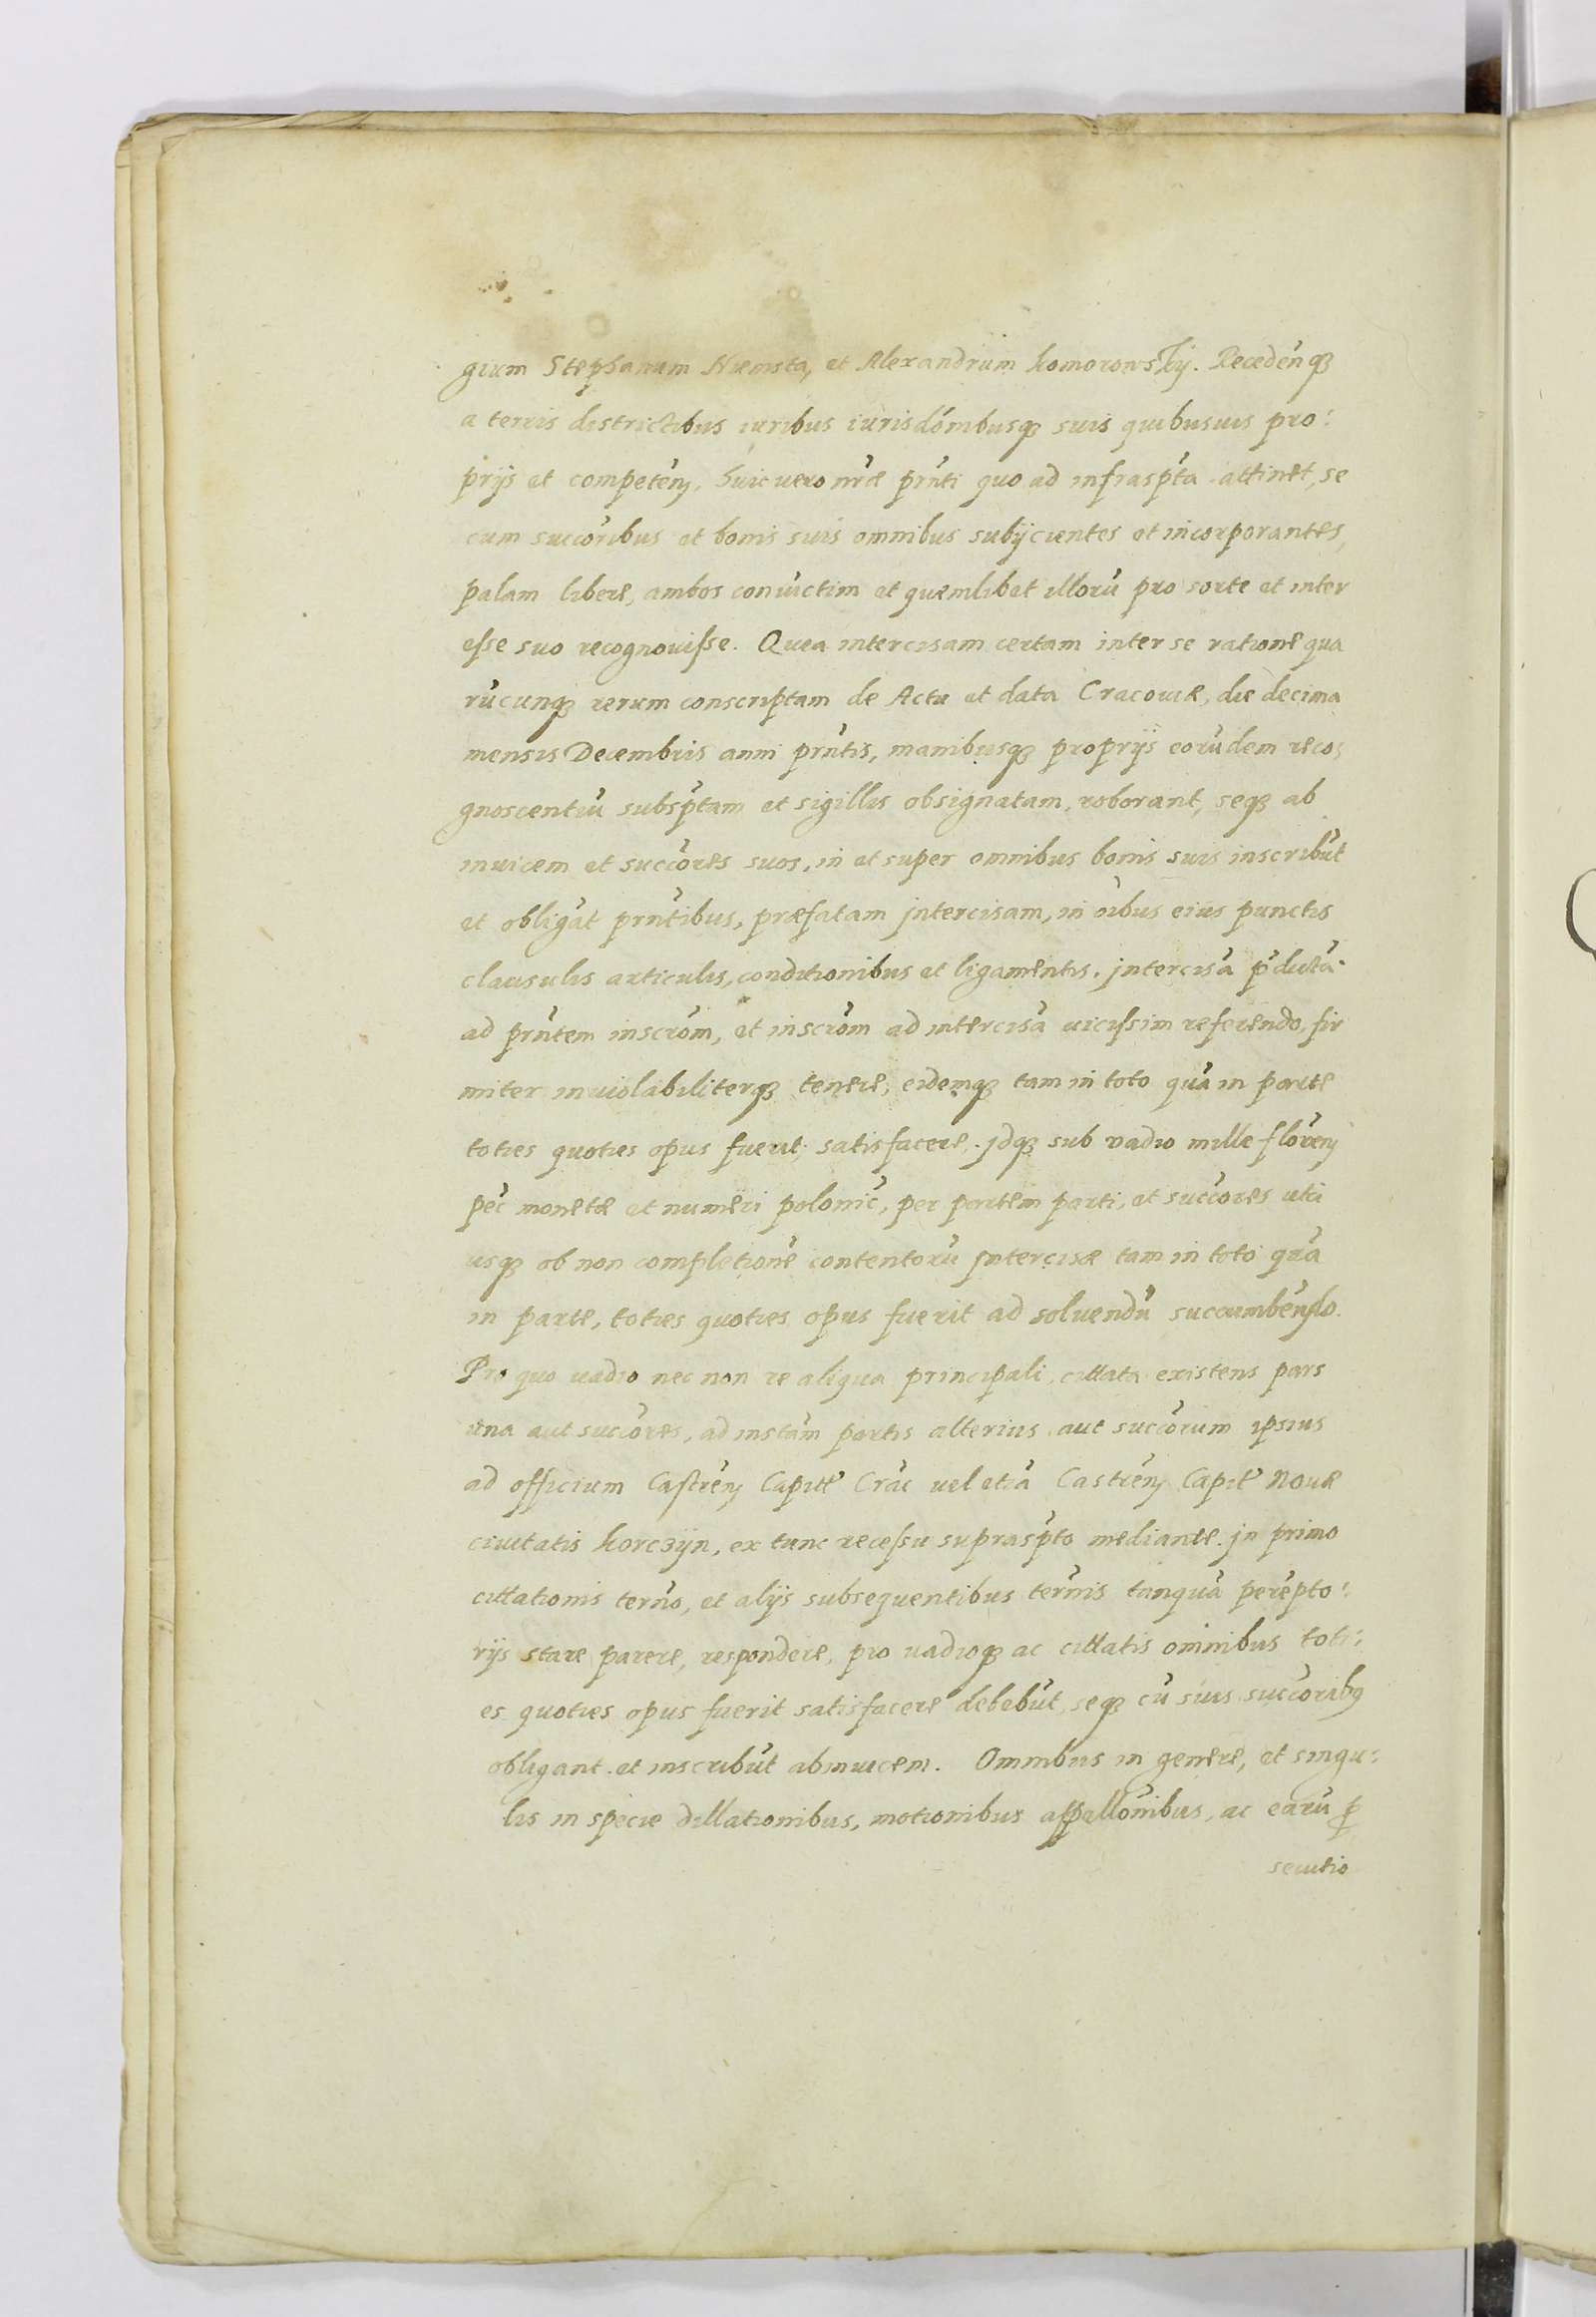 gium Stephanum Niemsta, et Alexandrum Komorowskÿ. Recedēnqꝫ
a terris districtibus iuribus iurisdōmbusqꝫ suis quibusuis pro:
prijs et competēn, huic vero nr̄æ prn̄ti quo ad infrasp̄ta attinet, se
cum succōribus et bonis suis omnibus subijcientes et incorporantes,
palam libere, ambos coniūctim et quemlibet illorū pro sorte et inter
esse suo recognouisse. Quia intercisam certam inter se rationē qua
rūcunqꝫ rerum conscriptam de Actu et data Cracouiæ, die decima
mensis Decembris anni prn̄tis, manibusqꝫ proprijs eorūdem reco:
gnoscentiū subsp̄tam et sigillis obsignatam, roborant, seqꝫ ab
inuicem et succōres suos, in et super omnibus bonis suis inscribūt
et obligāt prn̄tibus, præfatam jntercisam, in oībus eius punctis
clausulis articulis, conditionibus et ligamentis. jntercisā p̄dictā
ad prn̄tem inscrōm, et inscrōm ad intercisā uicissim referendo, fir
miter inuiolabiliterqꝫ tenere, eidemqꝫ tam in toto quā in parte
toties quoties opus fuerit, satisfacere. jdqꝫ sub vadio mille florēn
pēc monetæ et numeri polonīc, per partem parti, et succōres utri
usqꝫ ob non completionē contentorū jntercisæ tam in toto quā
in parte, toties quoties opus fuerit ad soluendū succumbēndo.
Pro quo uadio nec non re aliqua principali, cittata existens pars
una aut succōres, ad instām partis alterius aut succōrum ipsius
ad officium Castrēn Capitl̄ Crāc uel etiā Castrēn Capitl̄ Nouæ
ciuitatis Korczÿn, ex tunc recessu suprasp̄to mediante. jn primo
cittationis termō, et alijs subsequentibus termīs tanquā perēpto:
rijs stare parere, respondere, pro uadioqꝫ ac cittatis omnibus toti:
es quoties opus fuerit satisfacere debebūt, seqꝫ cū suis succōribꝰ
obligant et inscribūt abinuicem. Omnibus in genere, et singu:
lis in specie dillationibus, motionibus appellōnibus, ac earū ꝓ
secutio